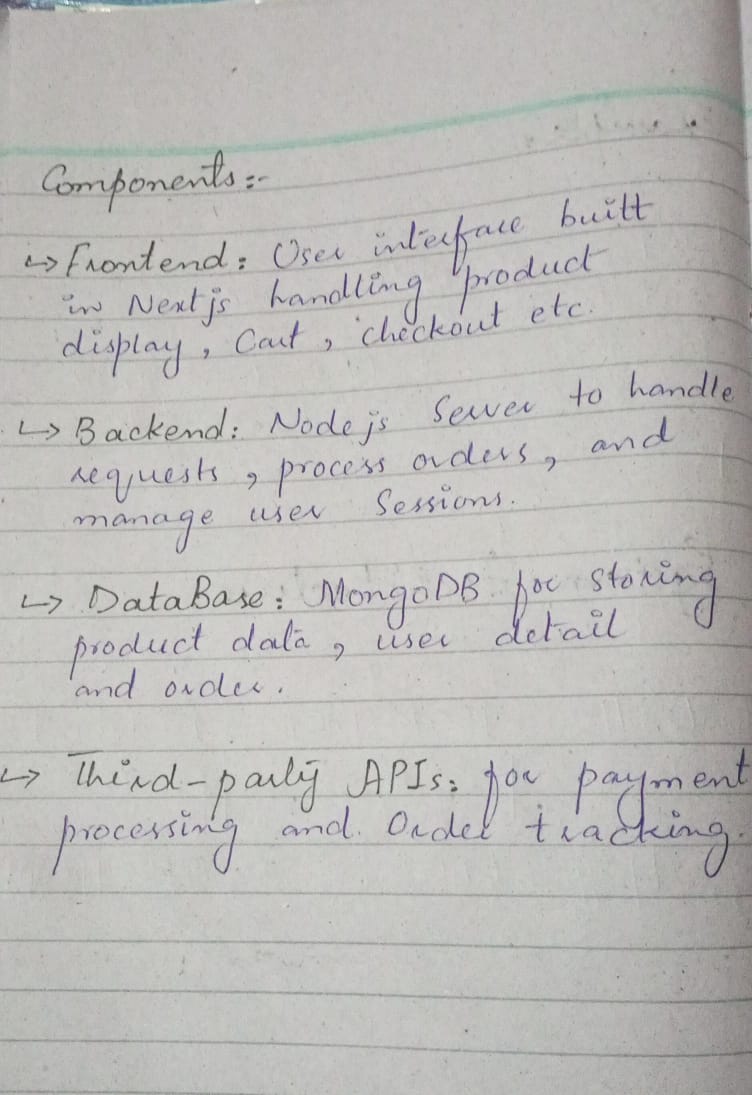 Components:-
↳ Frontend: User interface built
in Next js handling product
display, Cart, checkout etc.
↳ Backend: Node js Server to handle
requests, process orders, and
manage user Sessions.
↳ DataBase: MongoDB for storing
product data, user detail
and order.
↳ Third-party APIs: for payment
processing and Order tracking.